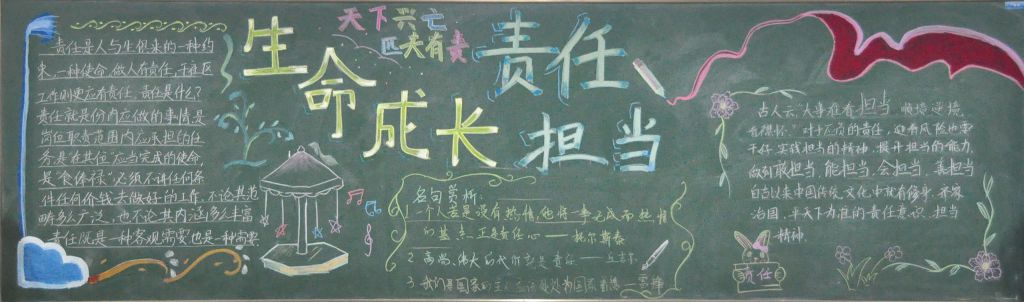 责任是人与生俱来的一种约
束，一种使命，做人有责任，干社区
工作则更应有责任，责任是什么？
责任就是份内应做的事情是
岗位职责范围内应承担的任
务是"在其位"应当完成的使命，
是"食俸禄"必须不讲任何条
件任何价钱去做好的工作，不论其范
畴多么广泛，也不论其内涵多么丰富
责任既是一种客观需要也是一种需要
天下兴亡
匹夫有责
生命
成长
责任
担当
名句赏析：
1 一个人若是没有热情，他将一事无成而热情
的基点正是责任心——托尔斯泰
2 高尚、伟大的代价就是责任——丘吉尔
3 我们是国家的主
古人云，大事难看担当 顺境逆境
看襟怀."
的责任，
干好 实践担当的精神 提升担当的能力，
做到敢担当，能担当，会担当，善担当
自古以来中国传统文化中就有修身 齐家
治国，平天下为重的责任意识，担当
精神
责任